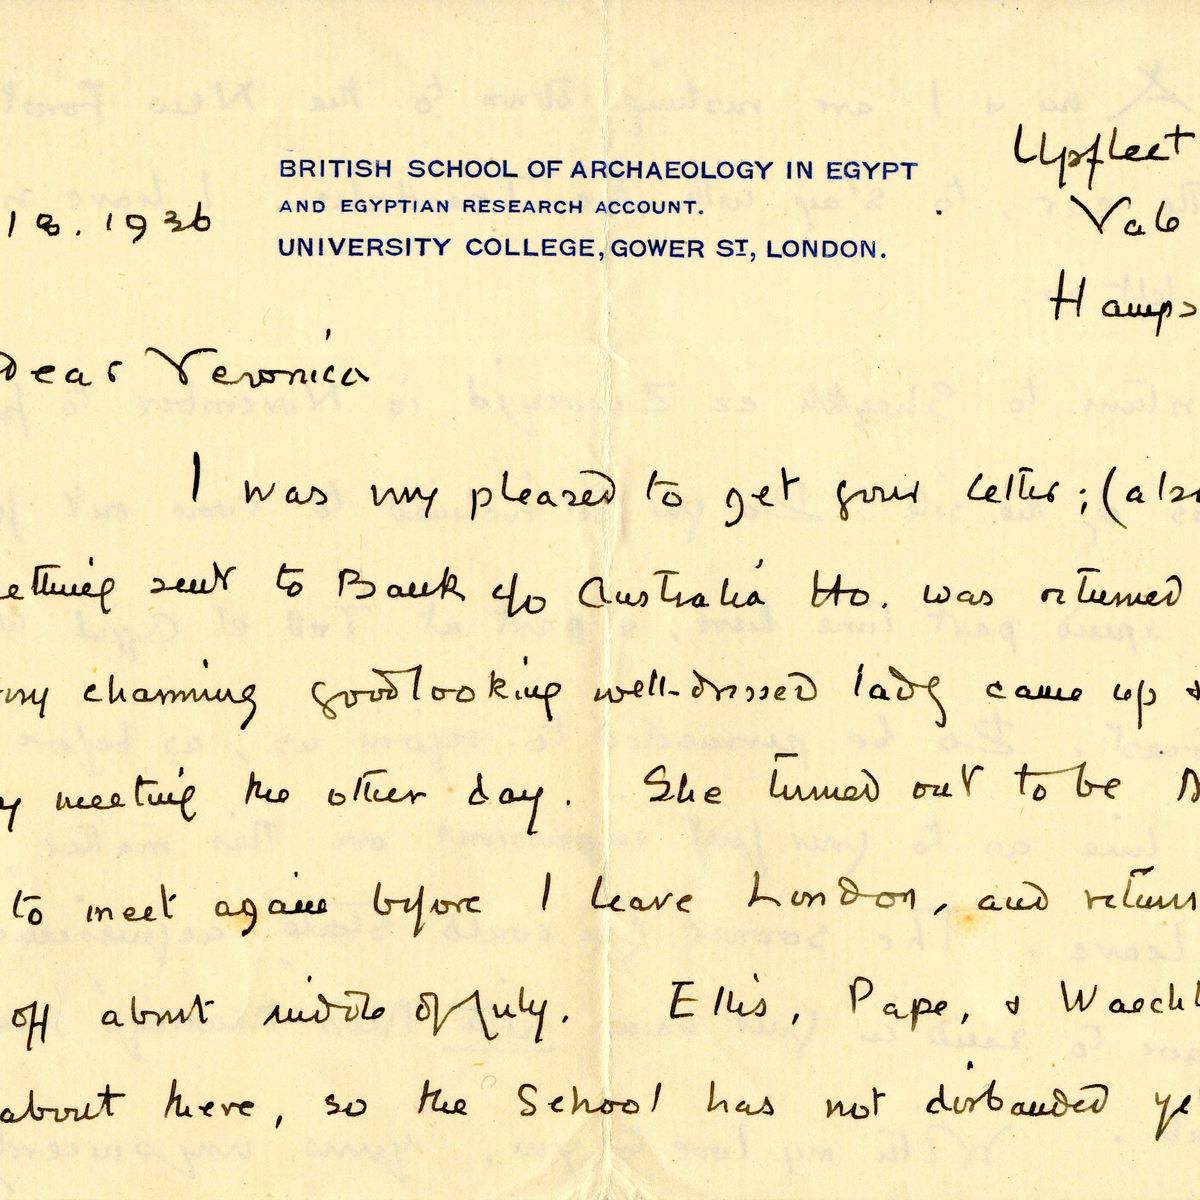 Upfleet
BRITISH SCHOOL OF ARCHAEOLOGY IN EGYPT
AND EGYPTIAN RESEARCH ACCOUNT.
UNIVERSITY COLLEGE, GOWER ST, LONDON.
18.1936
Vale
Hamps
Dear Veronica
I was very pleased to get your letter; (also
ething sent to Bank c/o Australia Ho. was returned
ery charming goodlooking well-dressed lady came up &
y meeting the other day. She turned out to be
to meet again before I leave London, and return
off about middle of July. Ellis, Pape, & Waecht
about here, so the School has not disbanded ye